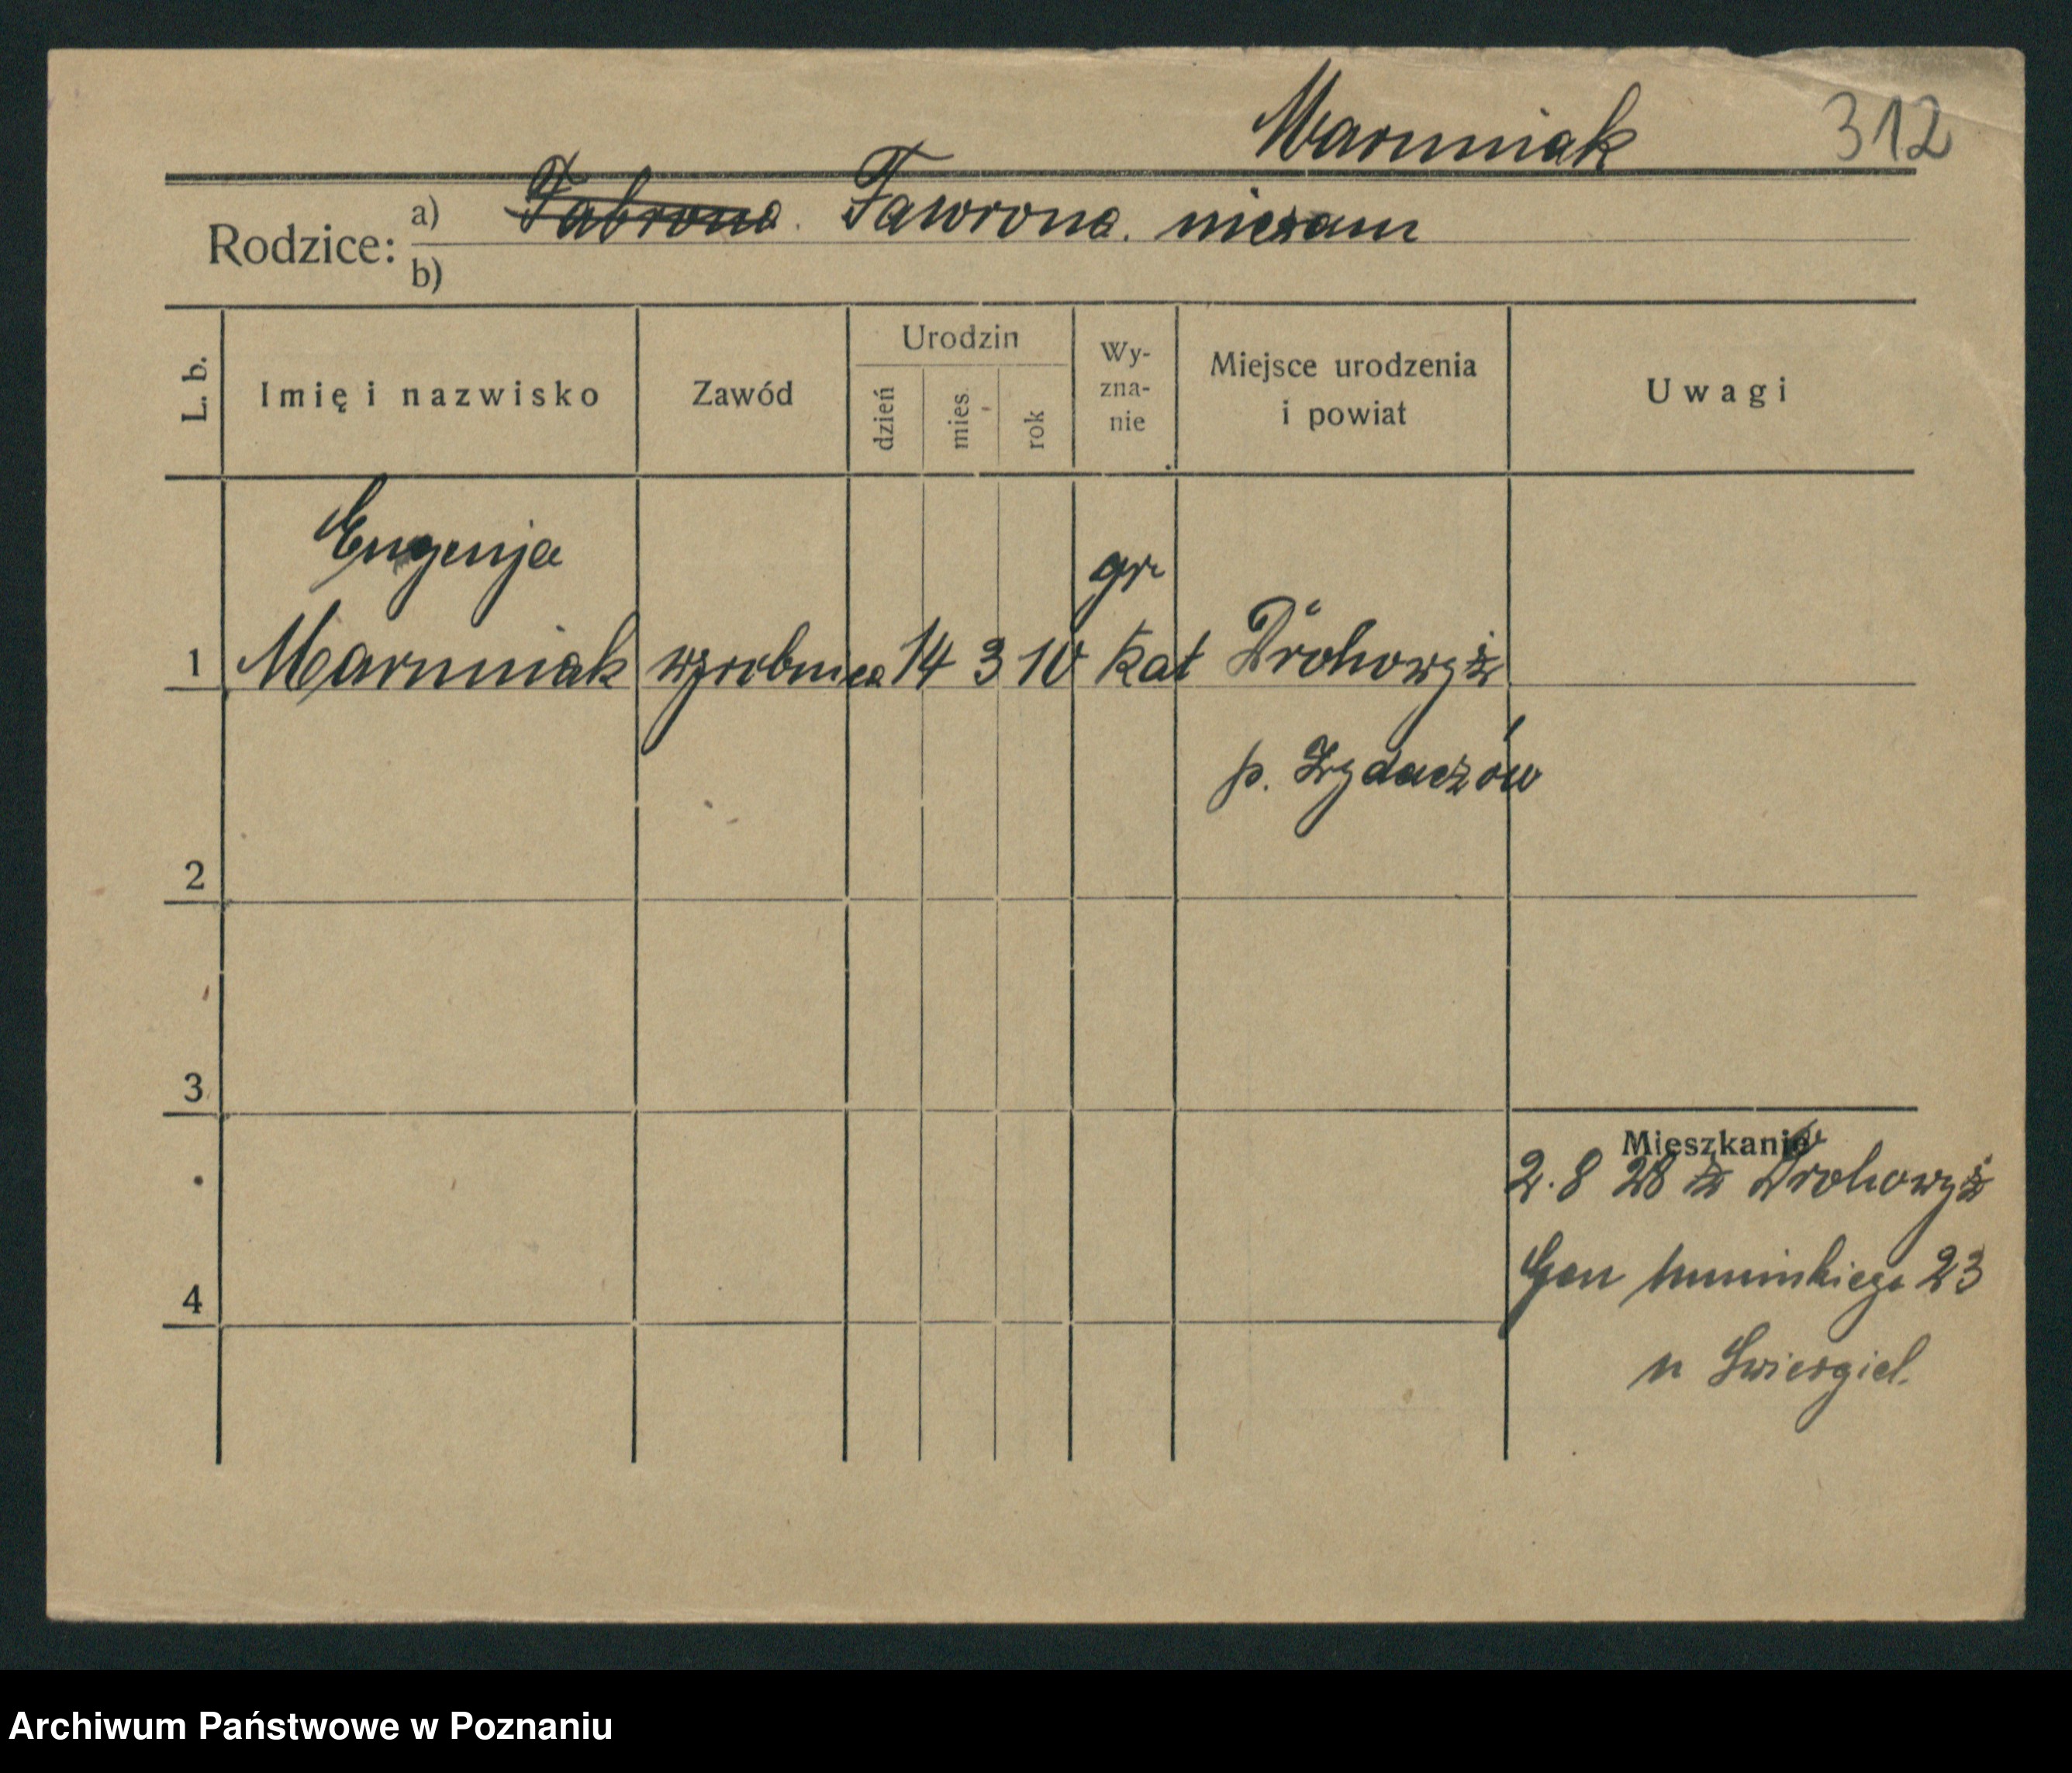 Marmniak 312
Rodzice: a) Fabrona. Fawrona. niezam
b)
L. b. Imię i nazwisko Zawód Urodzin dzień mies. rok Wy-zna-nie Miejsce urodzenia i powiat Uwagi
Eugenja gr
1 Marmniak wyrobnica 14 3 10 kat Drohowyż
p. Żydaczów
2
3
Mieszkanie
2.8 28 z Drohowyż
4 Gen 23
u Swiergiel.
Archiwum Państwowe w Poznaniu